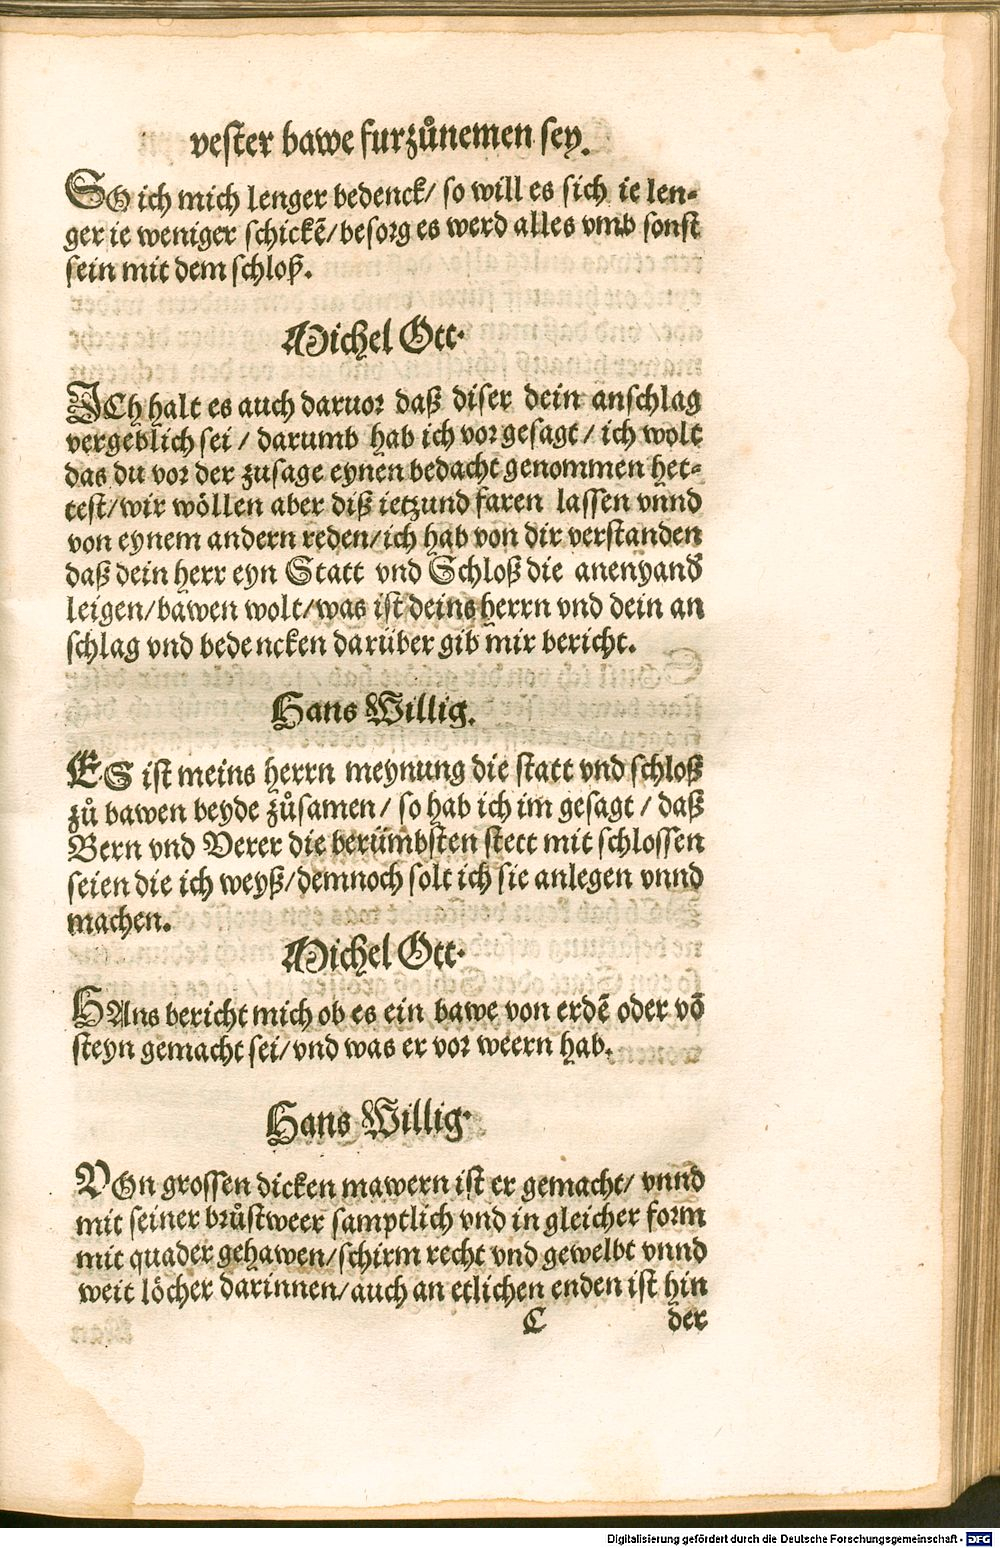 vester bawe furzůnemen sey.
SO ich mich lenger bedenck/ so will es sich ie len-
ger ie weniger schickē/ besorg es werd alles vmb sonst
sein mit dem schloß.
Michel Ott.
ICh halt es auch daruor daß diser dein anschlag
vergeblich sei / darumb hab ich vor gesagt / ich wolt
das du vor der zusage eynen bedacht genommen het-
test/ wir wöllen aber diß ietzund faren lassen vnnd
von eynem andern reden/ ich hab von dir verstanden
daß dein herr eyn Statt vnd Schloß die anenyand̕
leigen/ bawen wolt/ was ist deins herrn vnd dein an
schlag vnd bedencken darüber gib mir bericht.
Hans Willig.
ES ist meins herrn meynung die statt vnd schloß
zů bawen beyde zůsamen/ so hab ich im gesagt / daß
Bern vnd Verer die berümbsten stett mit schlossen
seien die ich weyß/ demnoch solt ich sie anlegen vnnd
machen.
Michel Ott.
HAns bericht mich ob es ein bawe von erdē oder vō
steyn gemacht sei/ vnd was er vor weern hab.
Hans Willig.
VOn grossen dicken mawern ist er gemacht/ vnnd
mit seiner brůstweer samptlich vnd in gleicher form
mit quader gehawen/ schirm recht vnd gewelbt vnnd
weit löcher darinnen/ auch an etlichen enden ist hin
C der
Digitalisierung gefördert durch die Deutsche Forschungsgemeinschaft - DFG